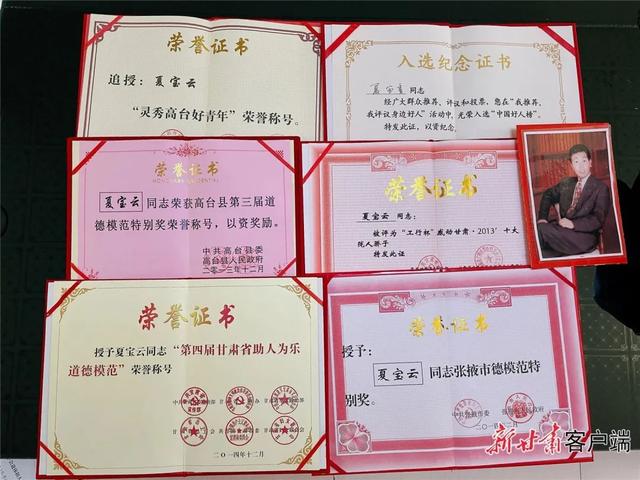 荣誉证书
追授：夏宝云
“灵秀高台好青年”荣誉称号。
入选纪念证书
夏宝云同志
经广大群众推荐、评议和投票，您在“我推荐、
我评议身边好人”活动中，光荣入选“中国好人榜”。
特发此证，以资纪念。
荣誉证书
夏宝云同志荣获高台县第三届道
德模范特别奖荣誉称号，以资奖励。
中共高台县委
高台县人民政府
二〇一三年十二月
荣誉证书
夏宝云 同志：
被评为“工行杯”感动甘肃·2013’十大
陇人骄子
特发此证
荣誉证书
授予夏宝云同志“第四届甘肃省助人为乐
道德模范”荣誉称号
二〇一四年十二月
荣誉证书
授予：
夏宝云同志张掖市德模范特
别奖。
新甘肃客户端